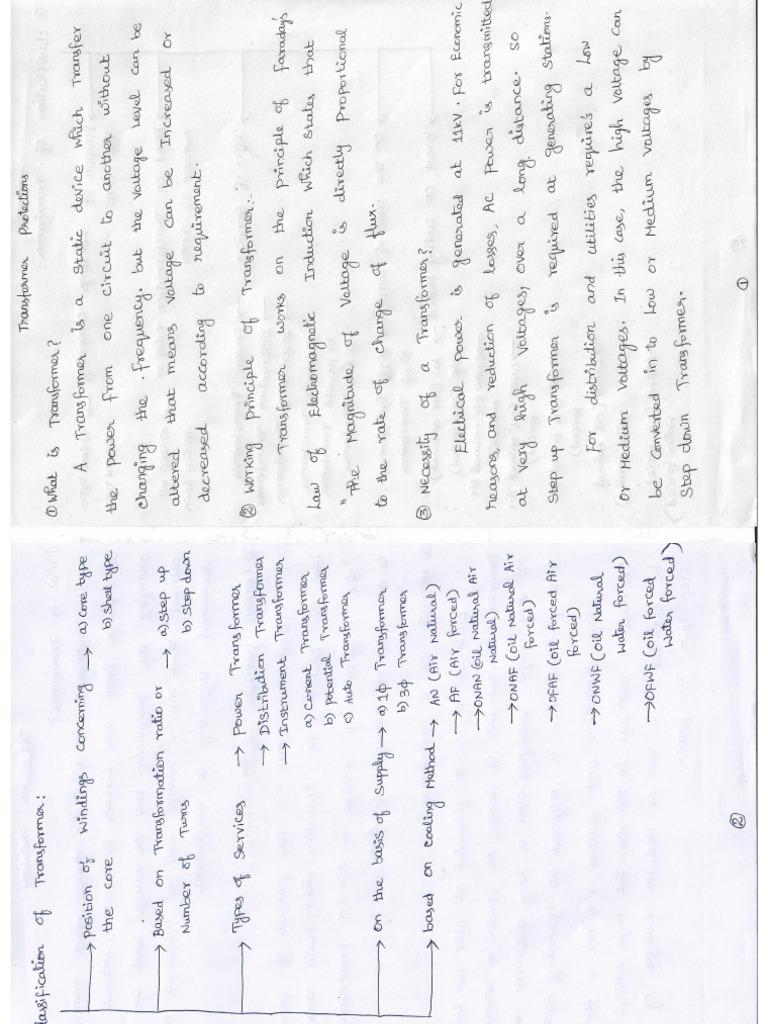 Transformer Protections
① What is Transformer?
A Transformer is a static device which Transfer
the power from one circuit to another without
changing the frequency. but the voltage level can be
altered that means voltage can be Increased or
decreased according to requirement.
② Working principle of Transformer:-
Transformer works on the principle of faraday's
Law of Electromagnetic Induction which states that
"The Magnitude of Voltage is directly Proportional
to the rate of change of flux.
③ Necessity of a Transformer?
Electrical power is generated at 11kV. For Economic
reasons, and reduction of losses, AC Power is transmitted
at very high Voltages, over a long distance. so
Step up Transformer is required at generating Stations.
For distribution and utilities require's a Low
or Medium Voltages. In this case, the high voltage can
be Converted in to Low or Medium voltages by
Step down Transformer.
①
lassification of Transformer:
→ Position of windings concerning → a) core type
the core b) shell type
→ Based on Transformation ratio or → a) Step up
Number of Turns b) Step down
→ Types of Services → Power Transformer
→ Distribution Transformer
→ Instrument Transformer
a) Current Transformer
b) potential Transformer
c) Auto Transformer
→ on the basis of Supply → a) 1ϕ Transformer
b) 3ϕ Transformer
→ based on cooling Method → AN (Air Natural)
→ AF (Air forced)
→ ONAN (Oil Natural Air
Natural)
→ ONAF (Oil Natural Air
forced)
→ OFAF (Oil forced Air
forced)
→ ONWF (Oil Natural
Water forced)
→ OFWF (Oil forced
Water forced)
②